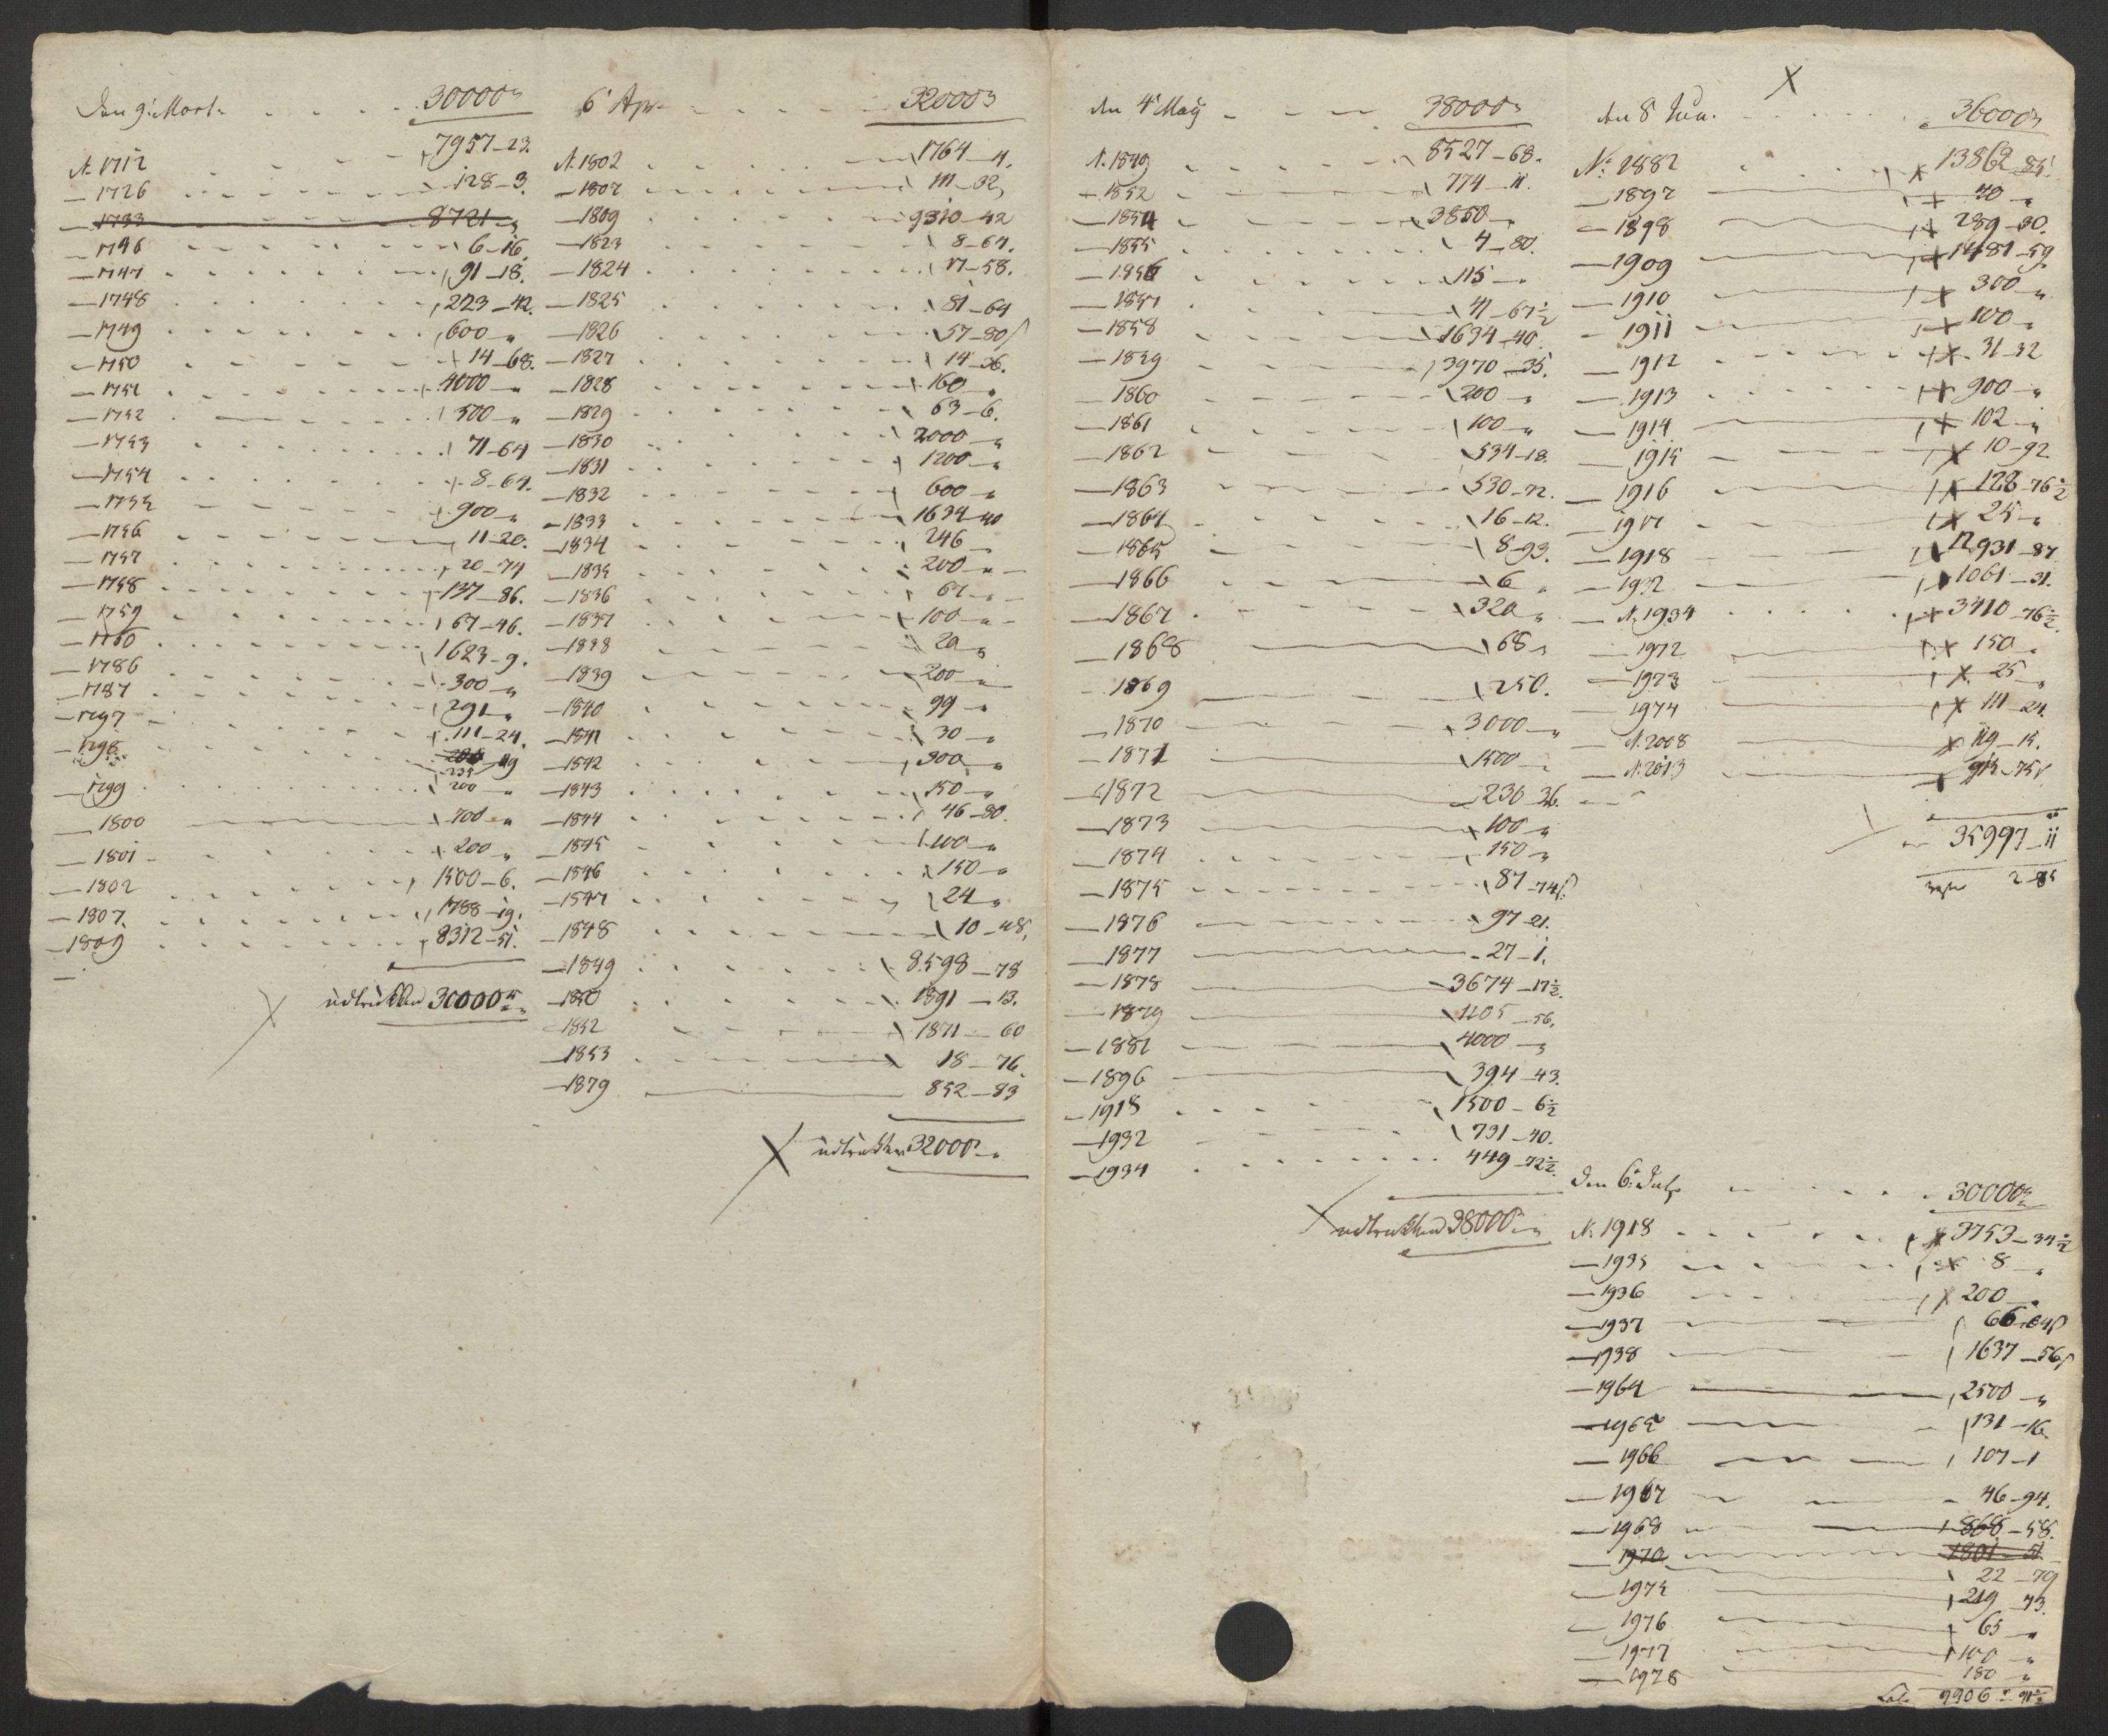 den 9 Mart. 30000
N. 1712 7957-23.
1726 128-3.
1733 8721
1746 6-16.
1747 91-18.
1748 223-42.
1749 600
1750 14-68.
1751 4000
1752 500
1753 71-64
1754 8-64.
1755 900
1756 11-20.
1757 20-74
1758 137-86.
1759 67-46.
1760 1623-9.
1786 300
1787 291
1797 111-24.
1798 235-49
1799 200
1800 700
1801 200
1802 1500-6.
1807. 1788-19.
1809 8312-51.
udtrukken 30000
6 Apr. 32000
N. 1802 1764-4.
1807 111-32
1809 9310-42
1823 8-64.
1824 17-58.
1825 81-64
1826 57-80
1827 14-36.
1828 160
1829 63-6.
1830 2000
1831 1200
1832 600
1833 1634-40
1834 246
1835 200
1836 67
1837 100
1838 20
1839 200
1840 99
1841 30
1842 300
1843 150
1844 46-80.
1845 100
1846 150
1847 24
1848 10-48.
1849 8598-78
1850 1891-13.
1852 1871-60
1853 18-76.
1879 852-83
udtrukken 32000
den 4 May 38000
N. 1849 8527-68.
1852 774-11.
1854 3850
1855 4-80.
1856 115
1857 41-67½
1858 1634-40.
1859 3970-35.
1860 200
1861 100
1862 534-18.
1863 530-72.
1864 16-12.
1865 8-93.
1866 6
1867 320
1868 68
1869 250.
1870 3000
1871 1500
1872 236-36.
1873 100
1874 150
1875 87-74
1876 97-21.
1877 27-1.
1878 3674-17½.
1879 1105-56.
1881 4000
1896 394-43.
1918 1500-6½
1932 731-40.
1934 449-72½.
udtrukken 38000
X
den 8 Jun. 36000
N. 1882 13862-85
1897 40
1898 289-30.
1909 1481-59
1910 300
1911 100
1912 31-32
1913 900
1914 102
1915 10-92
1916 128-76½
1917 25
1918 12931-87
1932 1061-31.
N. 1934 3410-76½.
1972 150
1973 25
1974 111-24.
N. 2008 119-15.
N. 2013 915-75
35997-11
2-85
den 6 July 30000
N. 1918 3753-34½
1935 8
1936 200
1937 66-64
1938 1637-56
1964 2500
1965 131-16
1966 107-1
1967 46-94.
1968 868-58.
1970 1801-51
22-79
1975 219-73.
1976 65
1977 100
1978 180
9906